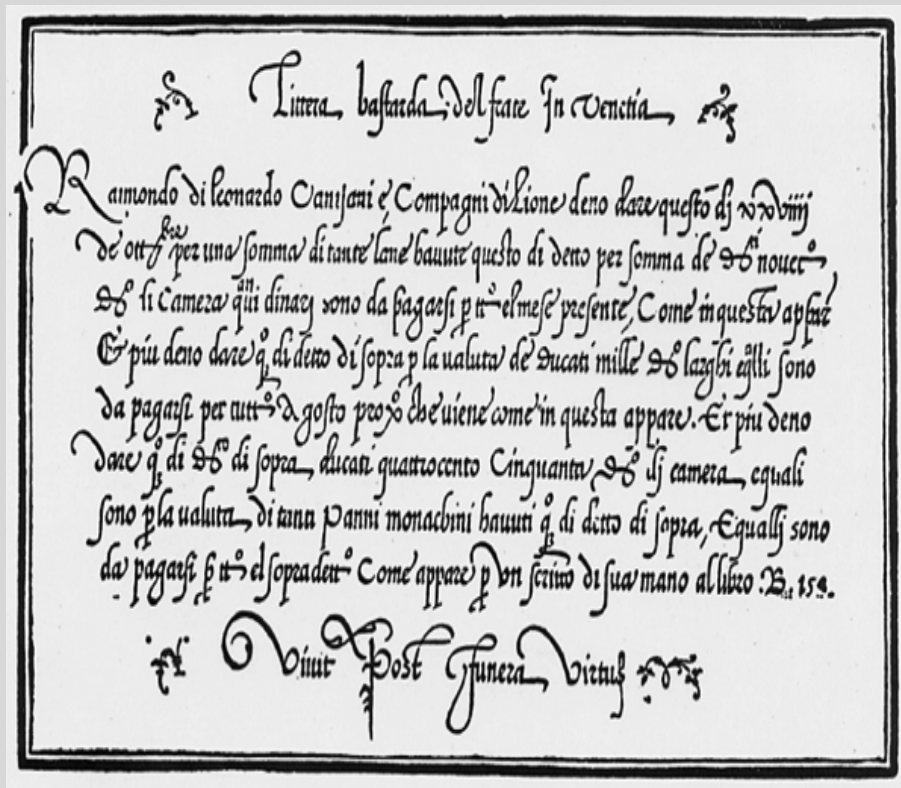 Littera bastarda del frate In Venetia
Raimondo di leonardo Canisani è Compagni di Lione deno dare questo dj xxviiij
de per una somma di tante lane havute questo di deno per somma de
li Camera dinarj sono da pagarsi p el mese presente, Come in questa
Et piu deno dare di detto di sopra p la valuta de Ducati mille larghi sono
da pagarsi per Agosto che viene come in questa appare. Et piu deno
dare di di sopra, ducati quattrocento Cinquanta camera, equali
sono p la valuta, di tanti Panni monachini havuti di detto di sopra, Equallj sono
da pagarsi p el sopradetto Come appare p un scritto di sua mano al libro .B.
Vivit Post Funera Virtus